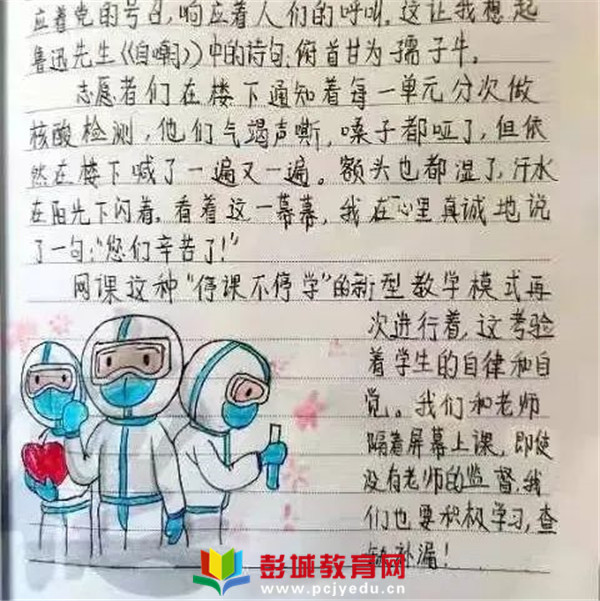 应着党的号召，响应着人们的呼叫。这让我想起
鲁迅先生《自嘲》中的诗句：俯首甘为孺子牛。
志愿者们在楼下通知着每一单元分次做
核酸检测，他们气竭声嘶，嗓子都哑了，但依
然在楼下喊了一遍又一遍。额头也都湿了，汗水
在阳光下闪着。看着这一幕幕，我在心里真诚地说
了一句：“您们辛苦了！”
网课这种“停课不停学”的新型教学模式再
次进行着，这考验
着学生的自律和自
觉。我们和老师
隔着屏幕上课，即使
没有老师的监督，我
们也要积极学习，查
缺补漏！
彭城教育网
www.pcjyedu.cn